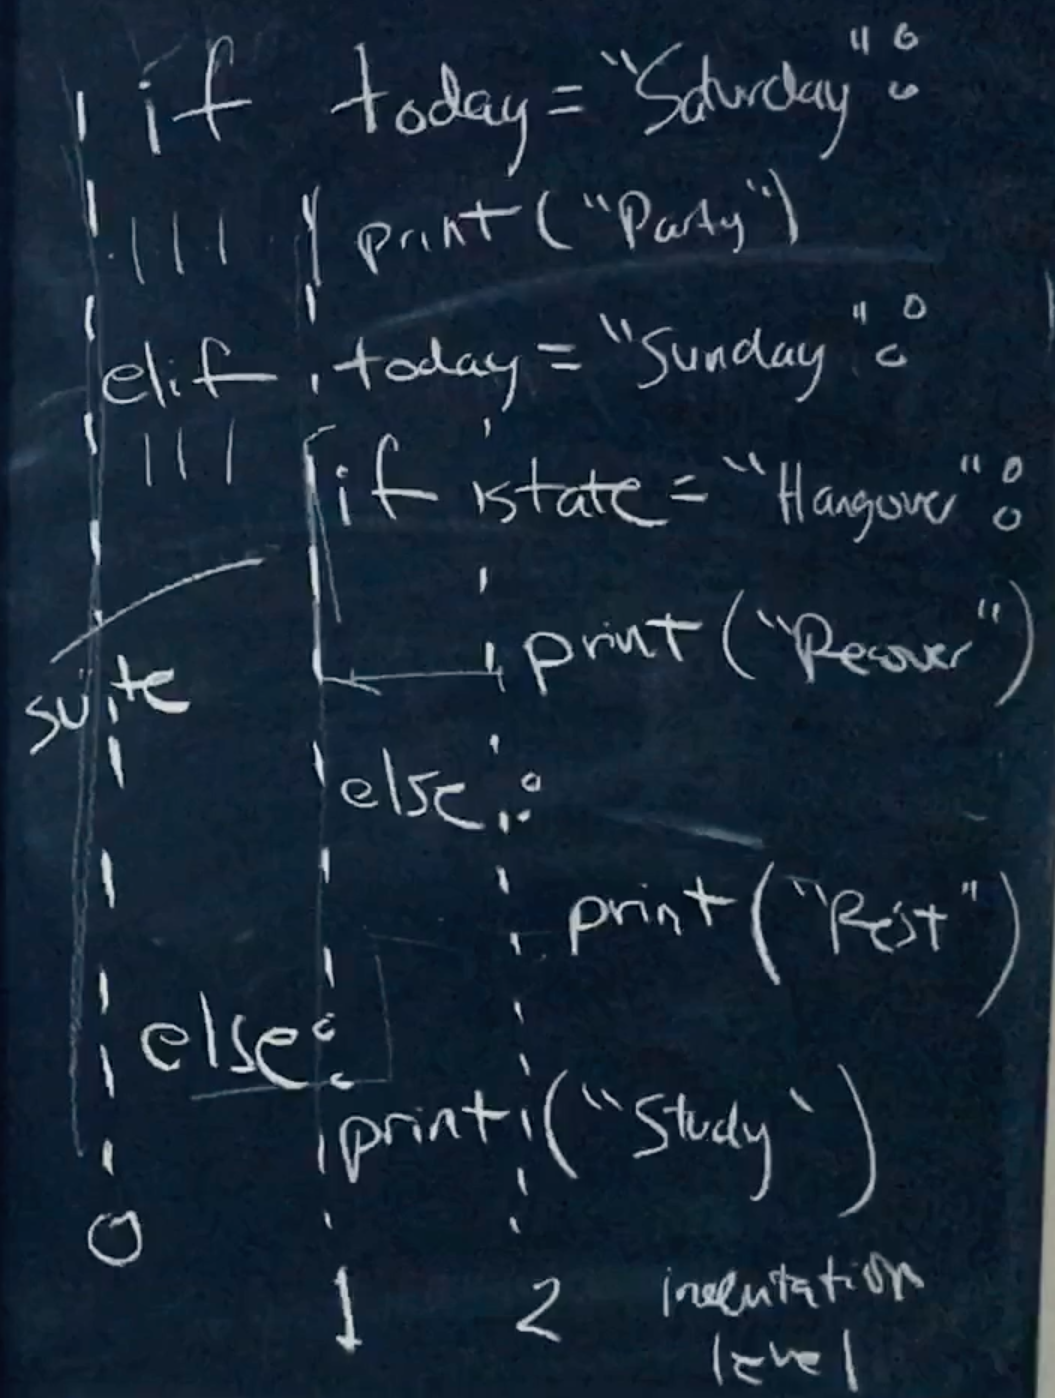 if today = "Saturday":
print("Party")
elif today = "Sunday":
if state = "Hangover":
print("Recover")
suite
else:
print("Rest")
else:
print("Study")
0
1 2 indentation
level